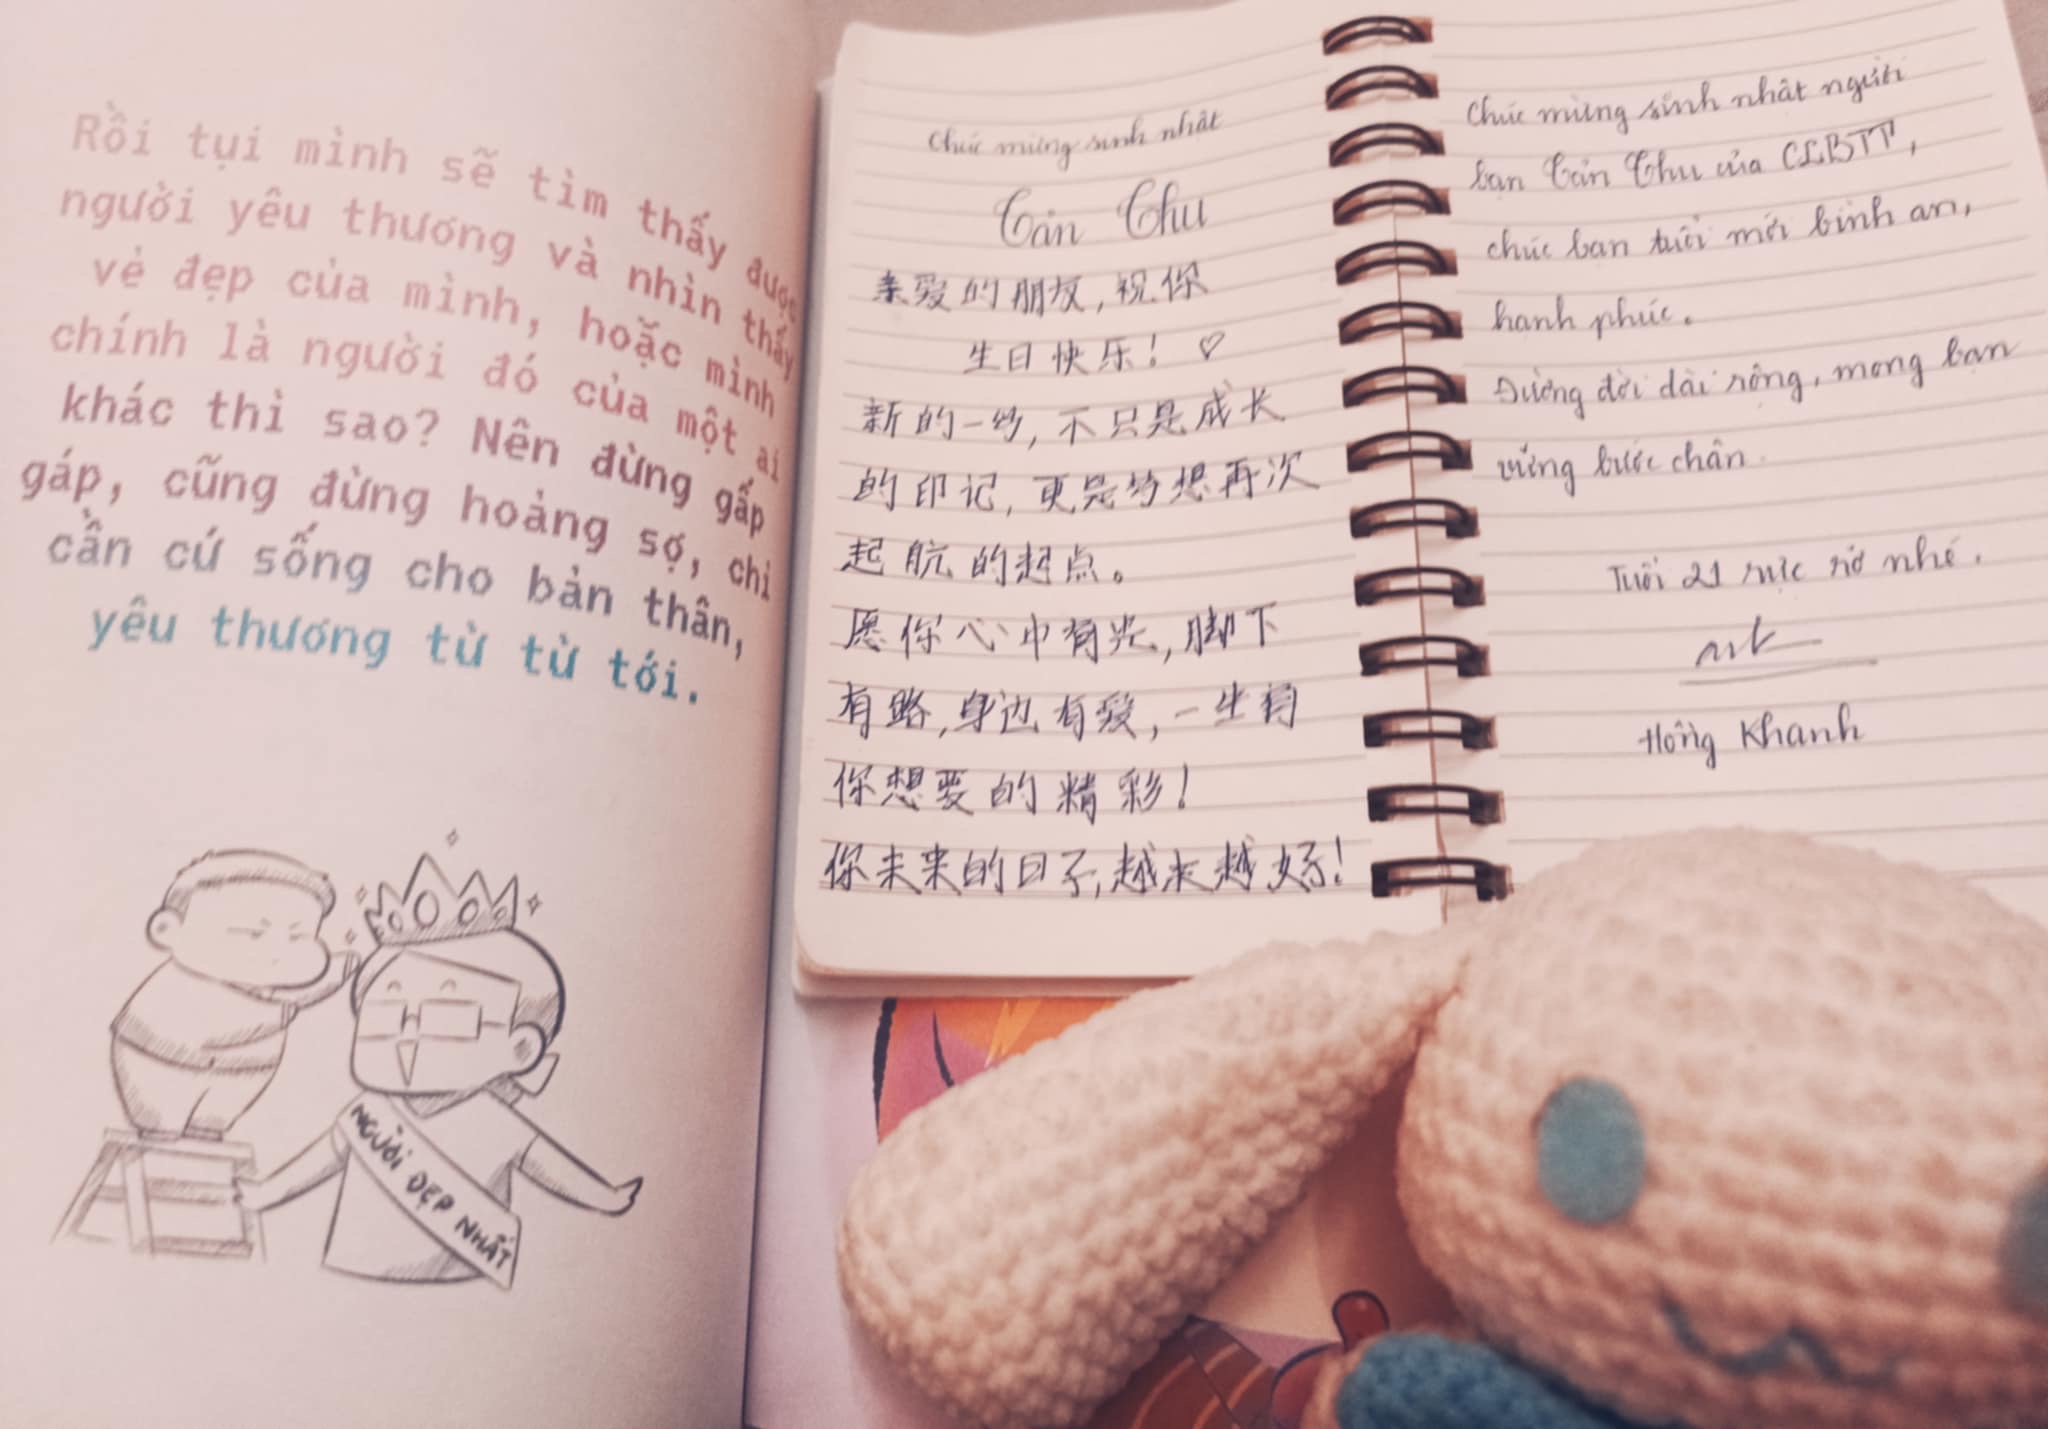 Rồi tụi mình sẽ tìm thấy được
người yêu thương và nhìn thấy
vẻ đẹp của mình, hoặc mình
chính là người đó của một ai
khác thì sao? Nên đừng gấp
gáp, cũng đừng hoảng sợ, chỉ
cần cứ sống cho bản thân,
yêu thương từ từ tới.
NGƯỜI ĐẸP NHẤT
Chúc mừng sinh nhật
Cản Thu
亲爱的朋友,祝你
生日快乐! ♡
新的一岁,不只是成长
的印记,更是梦想再次
起航的起点。
愿你心中有光,脚下
有路,身边有爱,一生有
你想要的精彩!
你未来的日子,越来越好!
Chúc mừng sinh nhật người
bạn Cản Thu của CLBTT,
chúc bạn tuổi mới bình an,
hạnh phúc.
Đường đời dài rộng, mong bạn
vững bước chân.
Tuổi 21 rực rỡ nhé.
Hồng Khanh